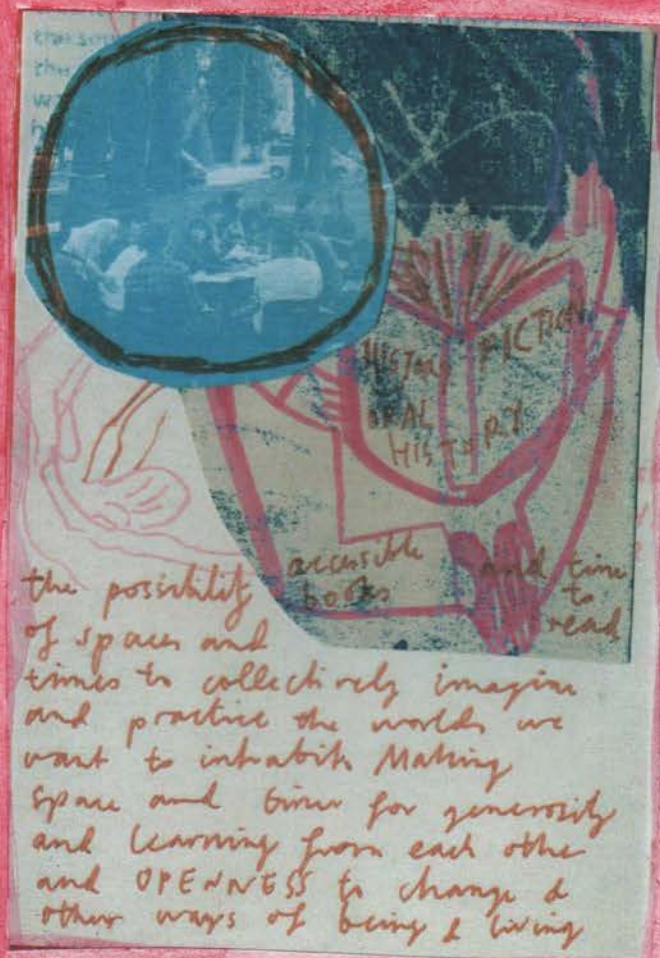 the
HISTORY FICTION
ORAL
HISTORY
accessible and time
books to
read
the possibility
of spaces and
times to collectively imagine
and practice the worlds we
want to inhabit. Making
space and time for generosity
and learning from each other
and OPENNESS to change &
other ways of being & living